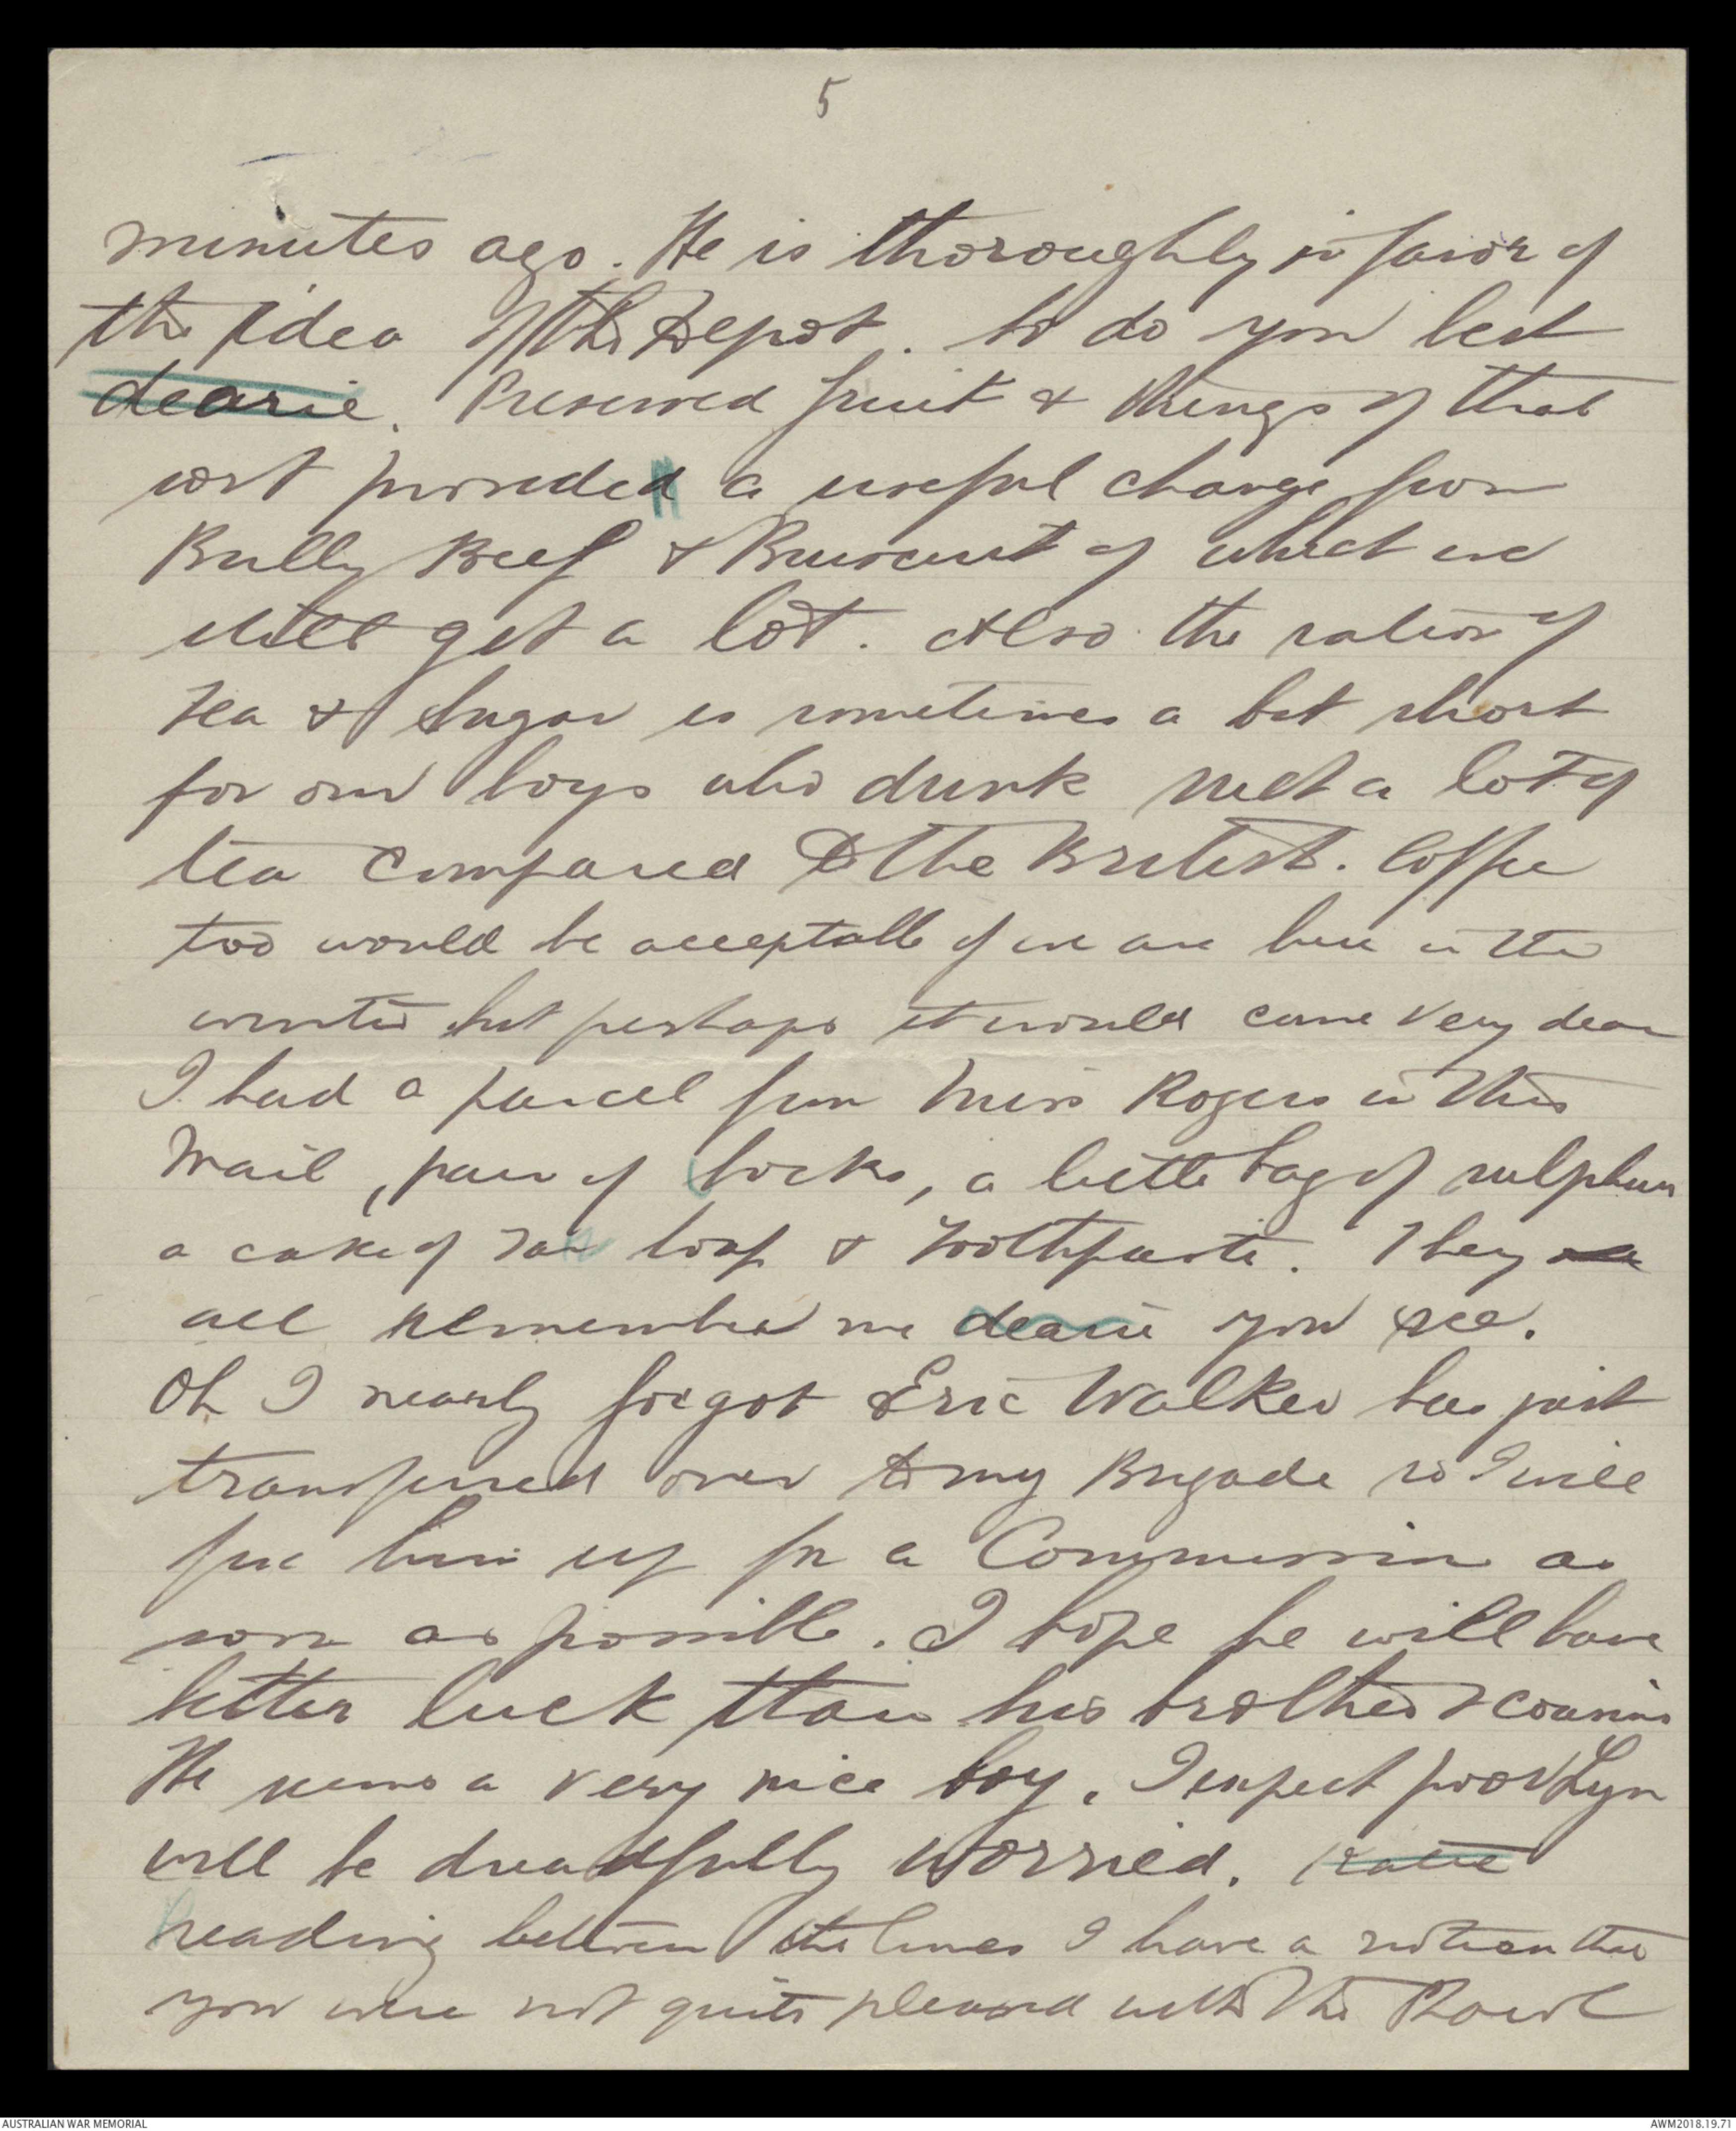 5
minutes ago. He is thoroughly in favor of
the idea of the Depot. So do you best
dearie. Preserved fruit & things of that
sort provided a useful change from
Bully Beef & Biuscuit of which we
still get a lot. Also the ration of
Tea & Sugar is sometimes a bit short
for our boys who drink a lot of
tea compared to the British. Coffee
too would be acceptable if we are here in the
winter but perhaps it would come very dear
I had a parcel from Miss Rogers in this
Mail, pair of socks, a little bag of sulphur
a cake of Tar Soap & Toothpaste. They
all remember me dearie you see.
Oh I nearly forgot Eric Walker has just
transferred over to my Brigade so I will
fix him up for a Commission as
soon as possible. I hope he will have
better luck than his brother & cousins
He seems a very nice boy. I expect poor Lyn
will be dreadfully worried. Katie
reading between the lines I have a notion that
you were not quite pleased with the
AUSTRALIAN WAR MEMORIAL
AWM2018.19.71